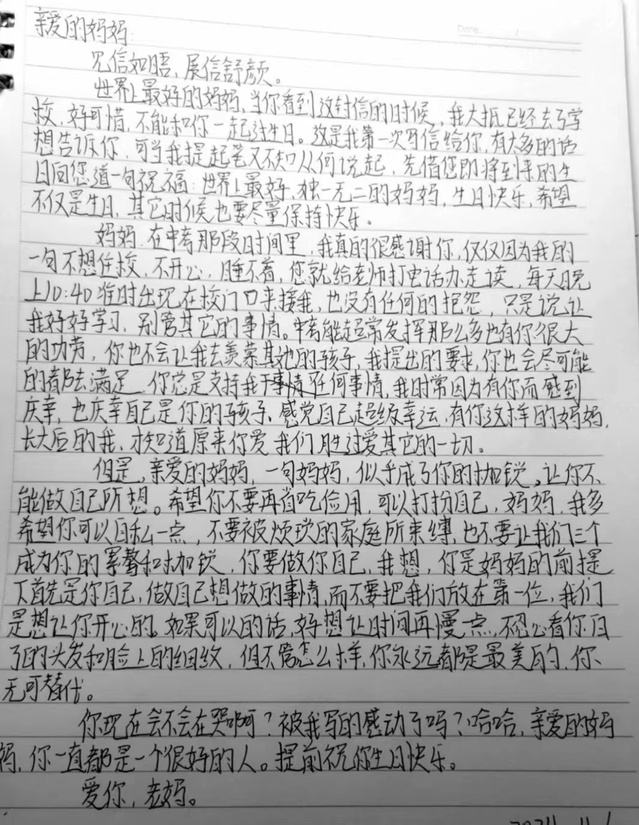 Date.
亲爱的妈妈:
见信如晤,展信舒颜。
世界上最好的妈妈,当你看到这封信的时候,我大抵已经去了学
校,好可惜,不能和你一起过生日。这是我第一次写信给你,有太多的话
想告诉你,可当我提起笔又不知从何说起,先借您即将到来的生
日向您道一句祝福:世界上最好,独一无二的妈妈,生日快乐,希望
不仅是生日,其它时候也要尽量保持快乐。
妈妈,在中考那段时间里,我真的很感谢你,仅仅因为我的
一句不想住校,不开心,睡不着,您就给老师打电话办走读,每天晚
上10:40准时出现在校门口来接我,也没有任何的抱怨,只是说让
我好好学习,别管其它的事情。中考能超常发挥那么多也有你很大
的功劳,你也不会让我去羡慕其他的孩子,我提出的要求,你也会尽可能
的都去满足,你总是支持我干任何事情,我时常因为有你而感到
庆幸,也庆幸自己是你的孩子,感觉自己超级幸运,有你这样的妈妈,
长大后的我,才知道原来你爱我们胜过爱其它的一切。
但是,亲爱的妈妈,一句妈妈,似乎成了你的枷锁,让你不
能做自己所想。希望你不要再省吃俭用,可以打扮自己,妈妈,我多
希望你可以自私一点,不要被烦琐的家庭所束缚,也不要让我们三个
成为你的累赘和枷锁,你要做你自己,我想,你是妈妈的前提
下首先是你自己,做自己想做的事情,而不要把我们放在第一位,我们
是想让你开心的,如果可以的话,好想让时间再慢点,不忍心看你白
了的头发和脸上的细纹,但不管怎么样,你永远都是最美的,你、
无可替代。
你现在会不会在哭啊?被我写的感动了吗?哈哈,亲爱的妈
妈,你一直都是一个很好的人。提前祝你生日快乐。
爱你,老妈。